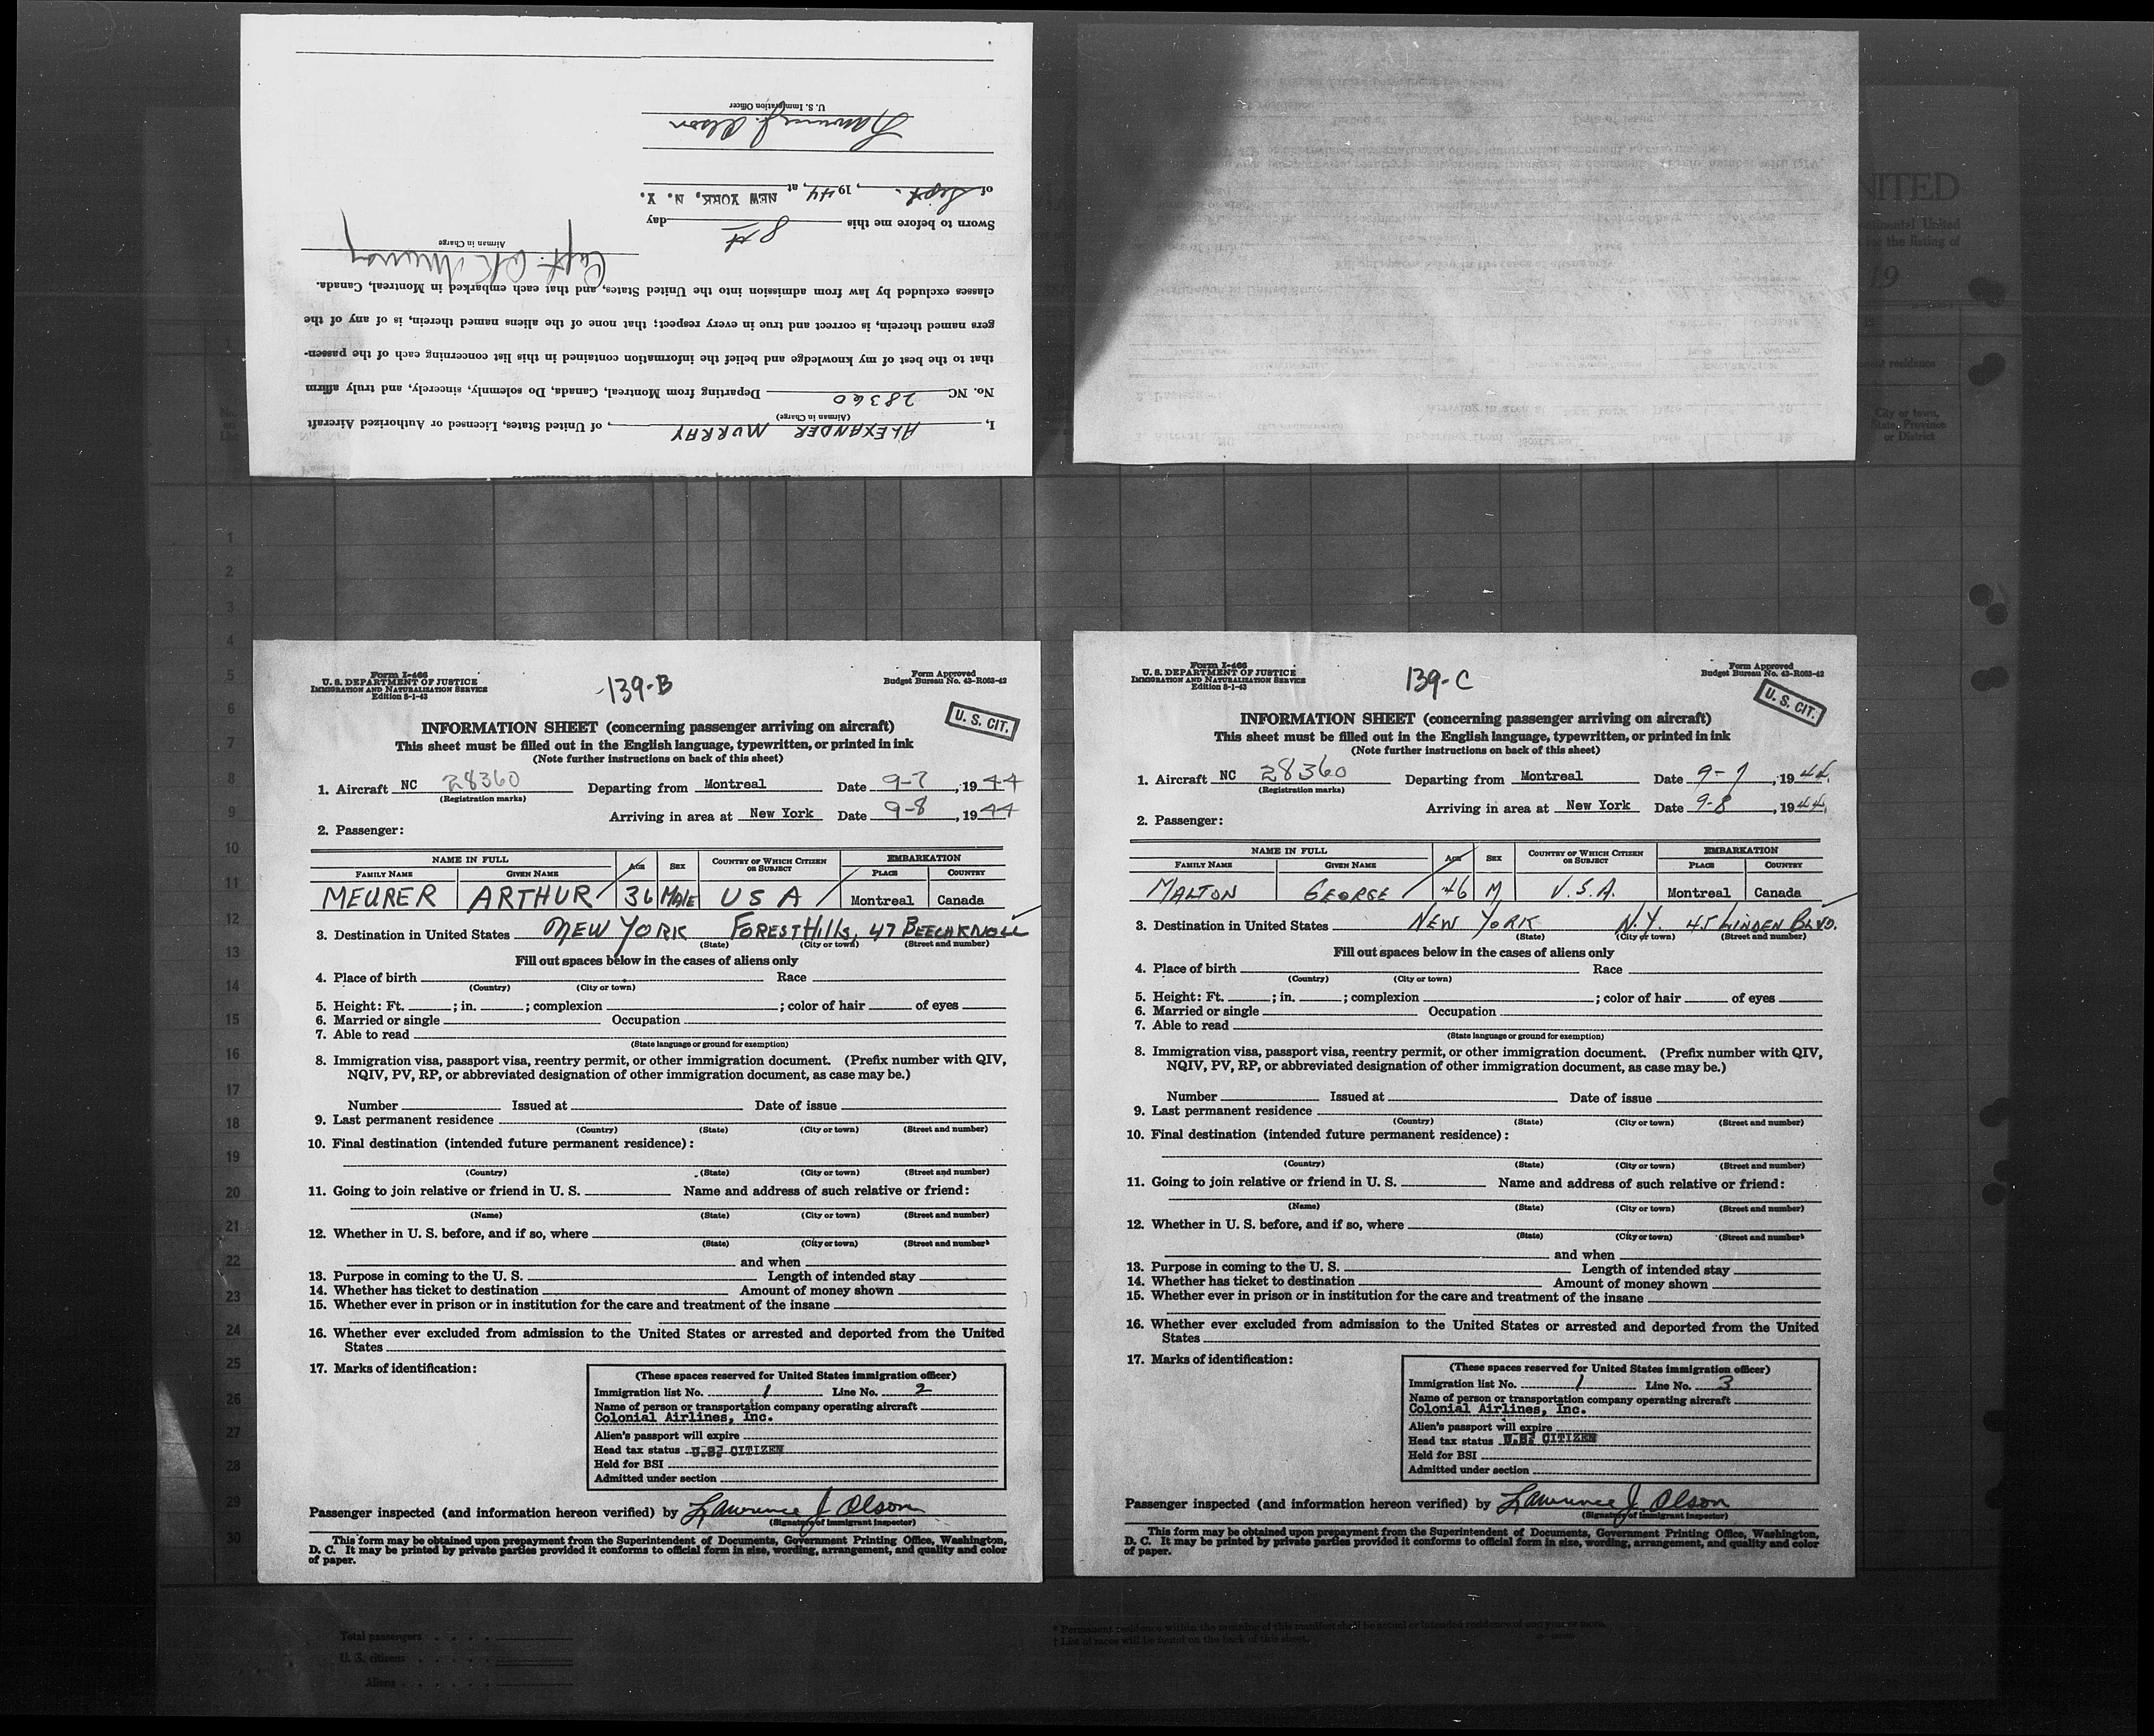 I, ALEXANDER MURRAY, of United States, Licensed or Authorized Aircraft
(Airman in Charge)
No. NC 28360 Departing from Montreal, Canada, Do solemnly, sincerely, and truly affirm
that to the best of my knowledge and belief the information contained in this list concerning each of the passen-
gers named therein, is correct and true in every respect; that none of the aliens named therein, is of any of the
classes excluded by law from admission into the United States, and that each embarked in Montreal, Canada.
Capt. Murray
Airman in Charge
Sworn to before me this 8th day
of Sept., 1944, at NEW YORK, N. Y.
Lawrence J. Olson
U. S. Immigration Officer
Form I-466
U. S. DEPARTMENT OF JUSTICE
IMMIGRATION AND NATURALIZATION SERVICE
Edition 8-1-43
139-B
Form Approved
Budget Bureau No. 43-R063-42
U. S. CIT.
INFORMATION SHEET (concerning passenger arriving on aircraft)
This sheet must be filled out in the English language, typewritten, or printed in ink
(Note further instructions on back of this sheet)
1. Aircraft NC 28360 Departing from Montreal Date 9-7, 1944
(Registration marks)
Arriving in area at New York Date 9-8, 1944
2. Passenger:
NAME IN FULL AGE SEX COUNTRY OF WHICH CITIZEN OR SUBJECT EMBARKATION
FAMILY NAME GIVEN NAME PLACE COUNTRY
MEURER ARTHUR 36 MALE USA Montreal Canada
3. Destination in United States NEW YORK FOREST Hills, 47 BEECHKNOLL
(State) (City or town) (Street and number)
Fill out spaces below in the cases of aliens only
4. Place of birth Race
(Country) (City or town)
5. Height: Ft. ; in. ; complexion ; color of hair of eyes
6. Married or single Occupation
7. Able to read
(State language or ground for exemption)
8. Immigration visa, passport visa, reentry permit, or other immigration document. (Prefix number with QIV,
NQIV, PV, RP, or abbreviated designation of other immigration document, as case may be.)
Number Issued at Date of issue
9. Last permanent residence
(Country) (State) (City or town) (Street and number)
10. Final destination (intended future permanent residence):
(Country) (State) (City or town) (Street and number)
11. Going to join relative or friend in U. S. Name and address of such relative or friend:
(Name) (State) (City or town) (Street and number)
12. Whether in U. S. before, and if so, where
(State) (City or town) (Street and number)
and when
13. Purpose in coming to the U. S. Length of intended stay
14. Whether has ticket to destination Amount of money shown
15. Whether ever in prison or in institution for the care and treatment of the insane
16. Whether ever excluded from admission to the United States or arrested and deported from the United
States
17. Marks of identification:
(These spaces reserved for United States immigration officer)
Immigration list No. 1 Line No. 2
Name of person or transportation company operating aircraft
Colonial Airlines, Inc.
Alien's passport will expire
Head tax status U.S. CITIZEN
Held for BSI
Admitted under section
Passenger inspected (and information hereon verified) by Lawrence J Olson
(Signature of immigrant inspector)
This form may be obtained upon prepayment from the Superintendent of Documents, Government Printing Office, Washington,
D. C. It may be printed by private parties provided it conforms to official form in size, wording, arrangement, and quality and color
of paper.
Form I-466
U. S. DEPARTMENT OF JUSTICE
IMMIGRATION AND NATURALIZATION SERVICE
Edition 8-1-43
139-C
Form Approved
Budget Bureau No. 43-R063-42
U. S. CIT.
INFORMATION SHEET (concerning passenger arriving on aircraft)
This sheet must be filled out in the English language, typewritten, or printed in ink
(Note further instructions on back of this sheet)
1. Aircraft NC 28360 Departing from Montreal Date 9-7, 1944
(Registration marks)
Arriving in area at New York Date 9-8, 1944
2. Passenger:
NAME IN FULL AGE SEX COUNTRY OF WHICH CITIZEN OR SUBJECT EMBARKATION
FAMILY NAME GIVEN NAME PLACE COUNTRY
MALTON GEORGE 46 M U.S.A. Montreal Canada
3. Destination in United States NEW YORK N.Y. 45 LINDEN BLVD.
(State) (City or town) (Street and number)
Fill out spaces below in the cases of aliens only
4. Place of birth Race
(Country) (City or town)
5. Height: Ft. ; in. ; complexion ; color of hair of eyes
6. Married or single Occupation
7. Able to read
(State language or ground for exemption)
8. Immigration visa, passport visa, reentry permit, or other immigration document. (Prefix number with QIV,
NQIV, PV, RP, or abbreviated designation of other immigration document, as case may be.)
Number Issued at Date of issue
9. Last permanent residence
(Country) (State) (City or town) (Street and number)
10. Final destination (intended future permanent residence):
(Country) (State) (City or town) (Street and number)
11. Going to join relative or friend in U. S. Name and address of such relative or friend:
(Name) (State) (City or town) (Street and number)
12. Whether in U. S. before, and if so, where
(State) (City or town) (Street and number)
and when
13. Purpose in coming to the U. S. Length of intended stay
14. Whether has ticket to destination Amount of money shown
15. Whether ever in prison or in institution for the care and treatment of the insane
16. Whether ever excluded from admission to the United States or arrested and deported from the United
States
17. Marks of identification:
(These spaces reserved for United States immigration officer)
Immigration list No. 1 Line No. 3
Name of person or transportation company operating aircraft
Colonial Airlines, Inc.
Alien's passport will expire
Head tax status U.S. CITIZEN
Held for BSI
Admitted under section
Passenger inspected (and information hereon verified) by Lawrence J. Olson
(Signature of immigrant inspector)
This form may be obtained upon prepayment from the Superintendent of Documents, Government Printing Office, Washington,
D. C. It may be printed by private parties provided it conforms to official form in size, wording, arrangement, and quality and color
of paper.
Total passengers
U. S. citizens
Aliens
* Permanent residence within the meaning of this manifest shall be actual or intended residence of one year or more.
† List of races will be found on the back of this sheet.